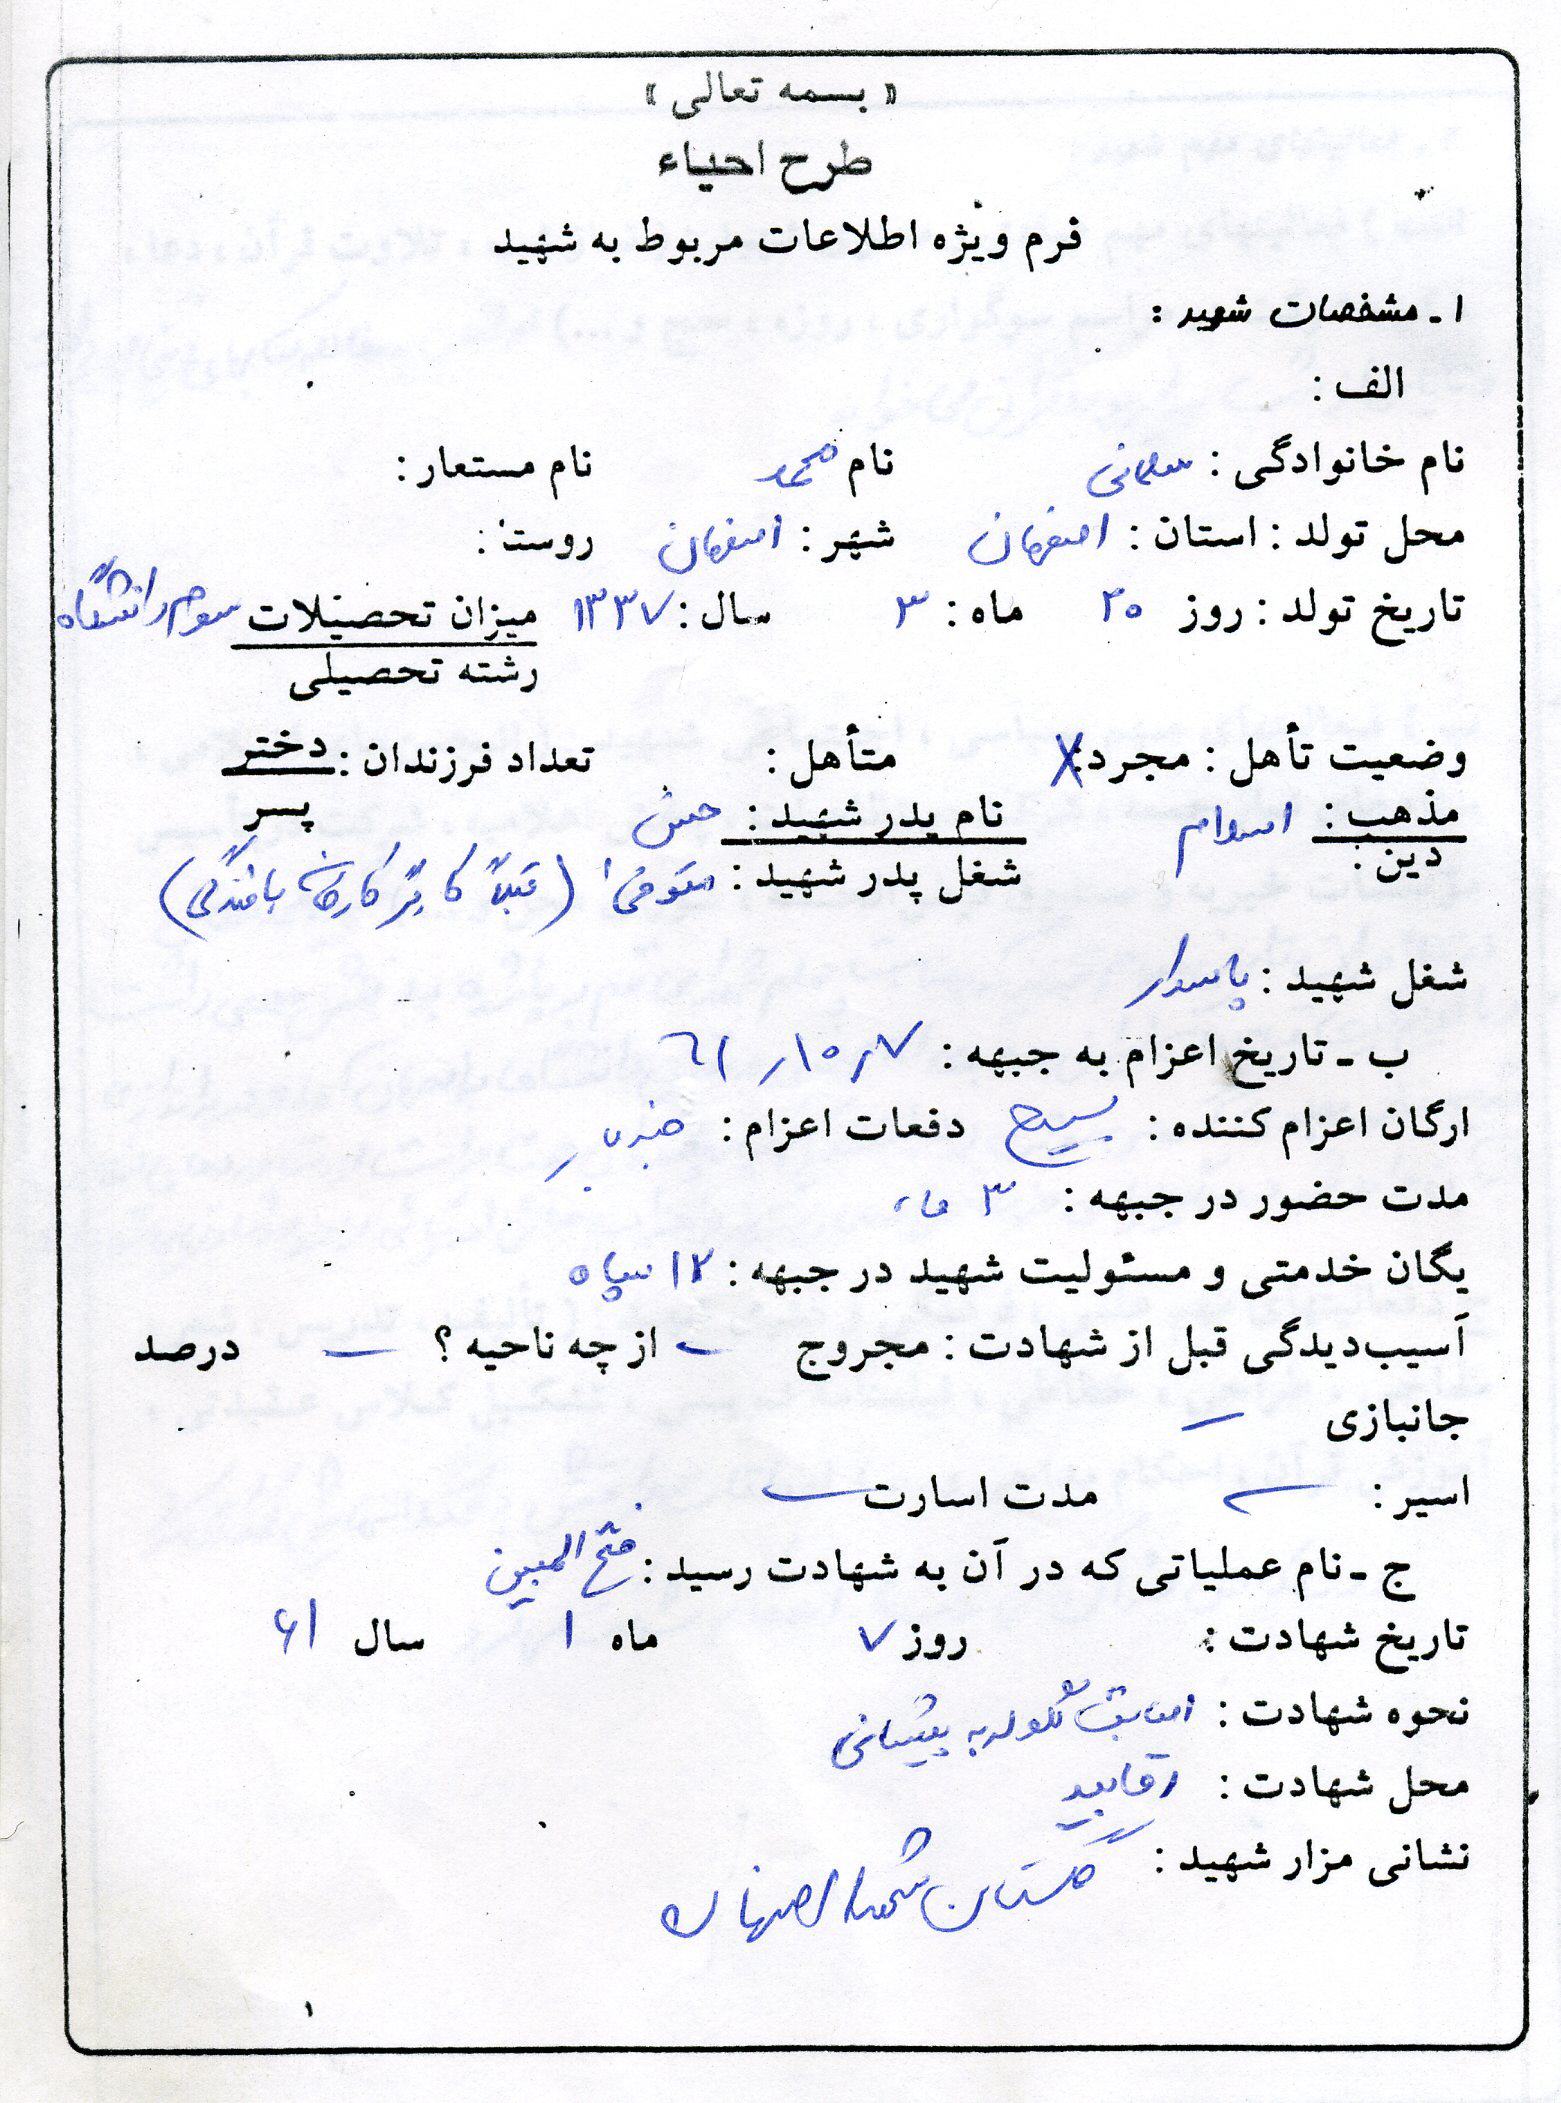 « بسمه تعالی »
طرح احیاء
فرم ویژه اطلاعات مربوط به شهید
۱ ـ مشخصات شهید :
الف :
نام خانوادگی : سلمانی نام محمد نام مستعار :
محل تولد : استان : اصفهان شهر : اصفهان روستا :
تاریخ تولد : روز ۲۰ ماه : ۳ سال : ۱۳۳۷ میزان تحصیلات سوم دانشگاه
رشته تحصیلی
وضعیت تأهل : مجرد X متأهل : تعداد فرزندان : دختر
پسر
مذهب : اسلام نام پدر شهید : حسن
دین : شغل پدر شهید : متوفی (قبلاً کارگر کارخانه بافندگی)
شغل شهید : پاسدار
ب ـ تاریخ اعزام به جبهه : ۷ ر ۱۰ ر ۶۱
ارگان اعزام کننده : بسیج دفعات اعزام :
مدت حضور در جبهه : ۳ ماه
یگان خدمتی و مسئولیت شهید در جبهه : ۱۲ سپاه
آسیب‌دیدگی قبل از شهادت : مجروح ـ از چه ناحیه ؟ ـ درصد
جانبازی ـ
اسیر : ـ مدت اسارت ـ
ج ـ نام عملیاتی که در آن به شهادت رسید : فتح المبین
تاریخ شهادت : روز ۷ ماه ۱ سال ۶۱
نحوه شهادت : اصابت گلوله به پیشانی
محل شهادت : رقابیه
نشانی مزار شهید : گلستان شهدا اصفهان
۱